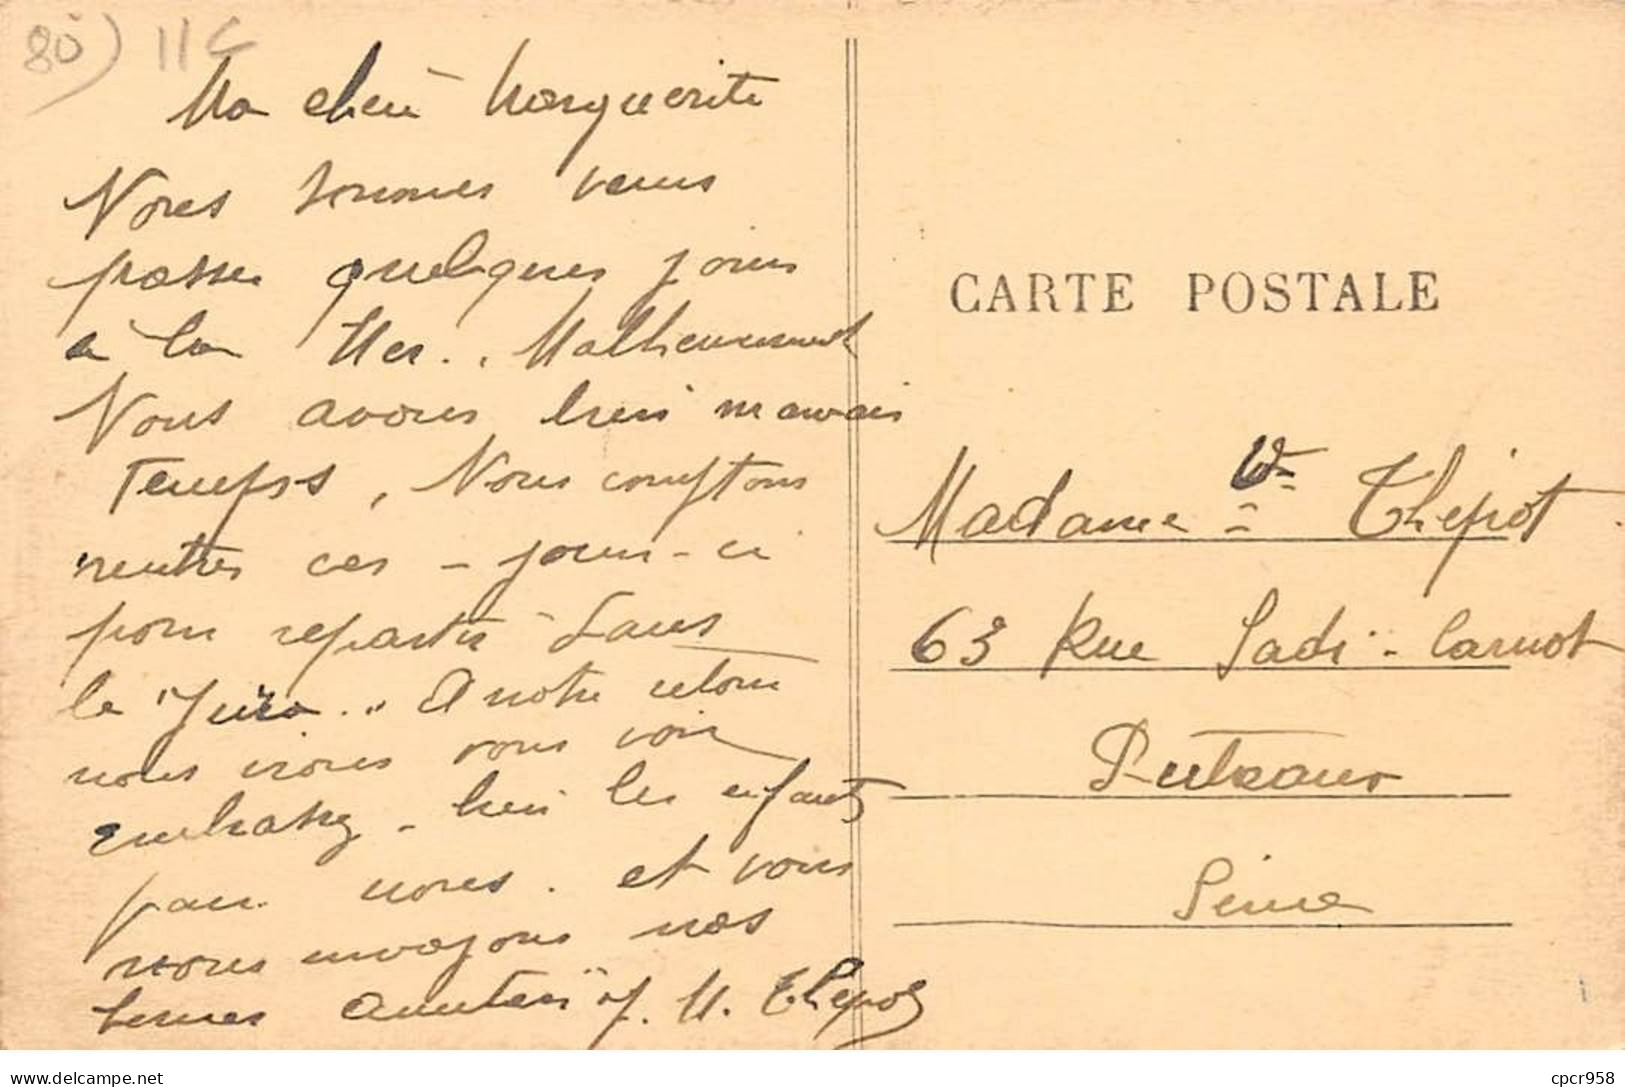 80) 11G
Ma chère Marguerite
Nous sommes venus
passer quelques jours
à la Mer.. Malheureusement
Nous avons bien mauvais
Temps, Nous comptons
rentrer ces - jours - ci
pour repartir dans
le "Jura.." A notre retour
nous irons vous voir
embrassez - bien les enfants
pour nous. et vous
nous envoyons nos
bonnes amitiés J. M. Thépot
CARTE POSTALE
Madame Vve Thépot
63 Rue Sadi - Carnot
Puteaux
Seine
cpcr958